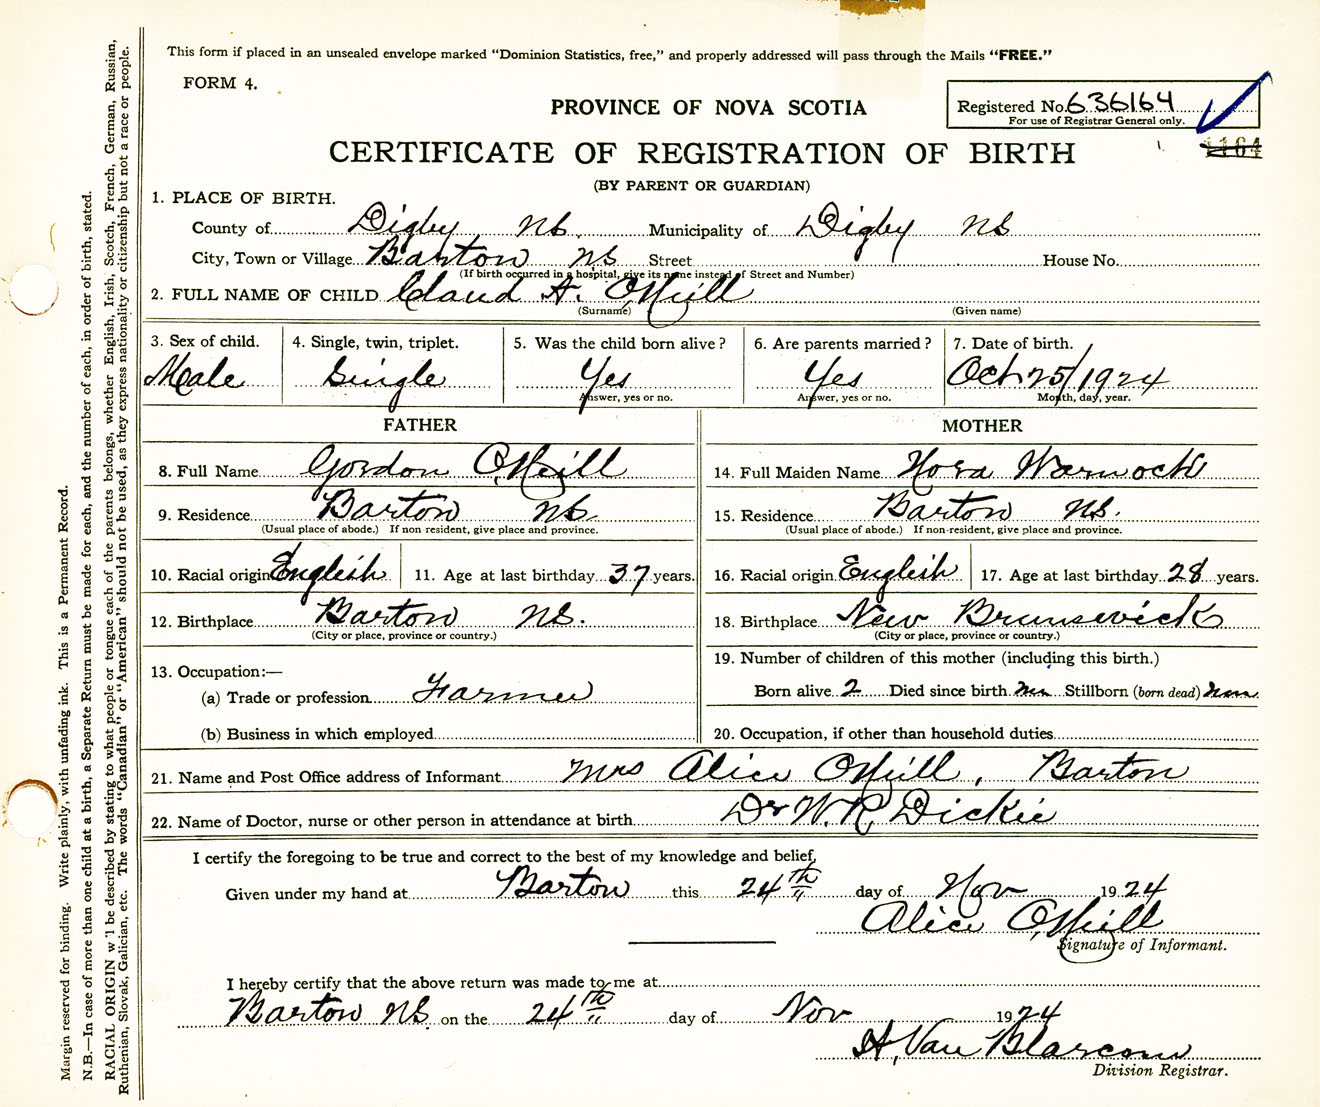 This form if placed in an unsealed envelope marked "Dominion Statistics, free," and properly addressed will pass through the Mails "FREE."
FORM 4.
PROVINCE OF NOVA SCOTIA
Registered No. 636164
For use of Registrar General only.
1164
CERTIFICATE OF REGISTRATION OF BIRTH
(BY PARENT OR GUARDIAN)
1. PLACE OF BIRTH.
County of Digby NS. Municipality of Digby NS
City, Town or Village Barton NS Street House No.
(If birth occurred in a hospital, give its name instead of Street and Number)
2. FULL NAME OF CHILD Claud A. O'Neill
(Surname) (Given name)
3. Sex of child. 4. Single, twin, triplet. 5. Was the child born alive? 6. Are parents married? 7. Date of birth.
Male Single Yes Yes Oct 25/1924
Answer, yes or no. Answer, yes or no. Month, day, year.
FATHER MOTHER
8. Full Name Gordon O'Neill 14. Full Maiden Name Nora Warnock
9. Residence Barton NS. 15. Residence Barton NS.
(Usual place of abode.) If non-resident, give place and province. (Usual place of abode.) If non-resident, give place and province.
10. Racial origin English 11. Age at last birthday 37 years. 16. Racial origin English 17. Age at last birthday 28 years.
12. Birthplace Barton NS. 18. Birthplace New Brunswick
(City or place, province or country.) (City or place, province or country.)
13. Occupation:— 19. Number of children of this mother (including this birth.)
(a) Trade or profession Farmer Born alive 2 Died since birth Stillborn (born dead)
(b) Business in which employed 20. Occupation, if other than household duties
21. Name and Post Office address of Informant Mrs Alice O'Neill, Barton
22. Name of Doctor, nurse or other person in attendance at birth Dr W. R. Dickie
I certify the foregoing to be true and correct to the best of my knowledge and belief,
Given under my hand at Barton this 24th day of Nov 1924
Alice O'Neill
Signature of Informant.
I hereby certify that the above return was made to me at
Barton NS. on the 24th day of Nov 1924
H. Van Blarcom
Division Registrar.
Margin reserved for binding. Write plainly, with unfading ink. This is a Permanent Record.
N.B.—In case of more than one child at a birth, a Separate Return must be made for each, and the number of each, in order of birth, stated.
RACIAL ORIGIN w'l be described by stating to what people or tongue each of the parents belongs, whether English, Irish, Scotch, French, German, Russian,
Ruthenian, Slovak, Galician, etc. The words "Canadian" or "American" should not be used, as they express nationality or citizenship but not a race or people.